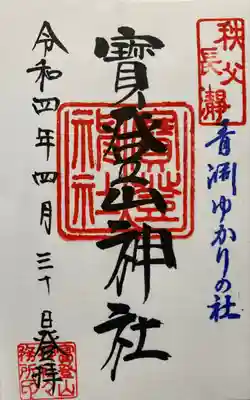 秩父
長瀞
青淵ゆかりの社
寳登山神社
寳登山
神社
令和四年四月三十日登拝
寳登山
務所印